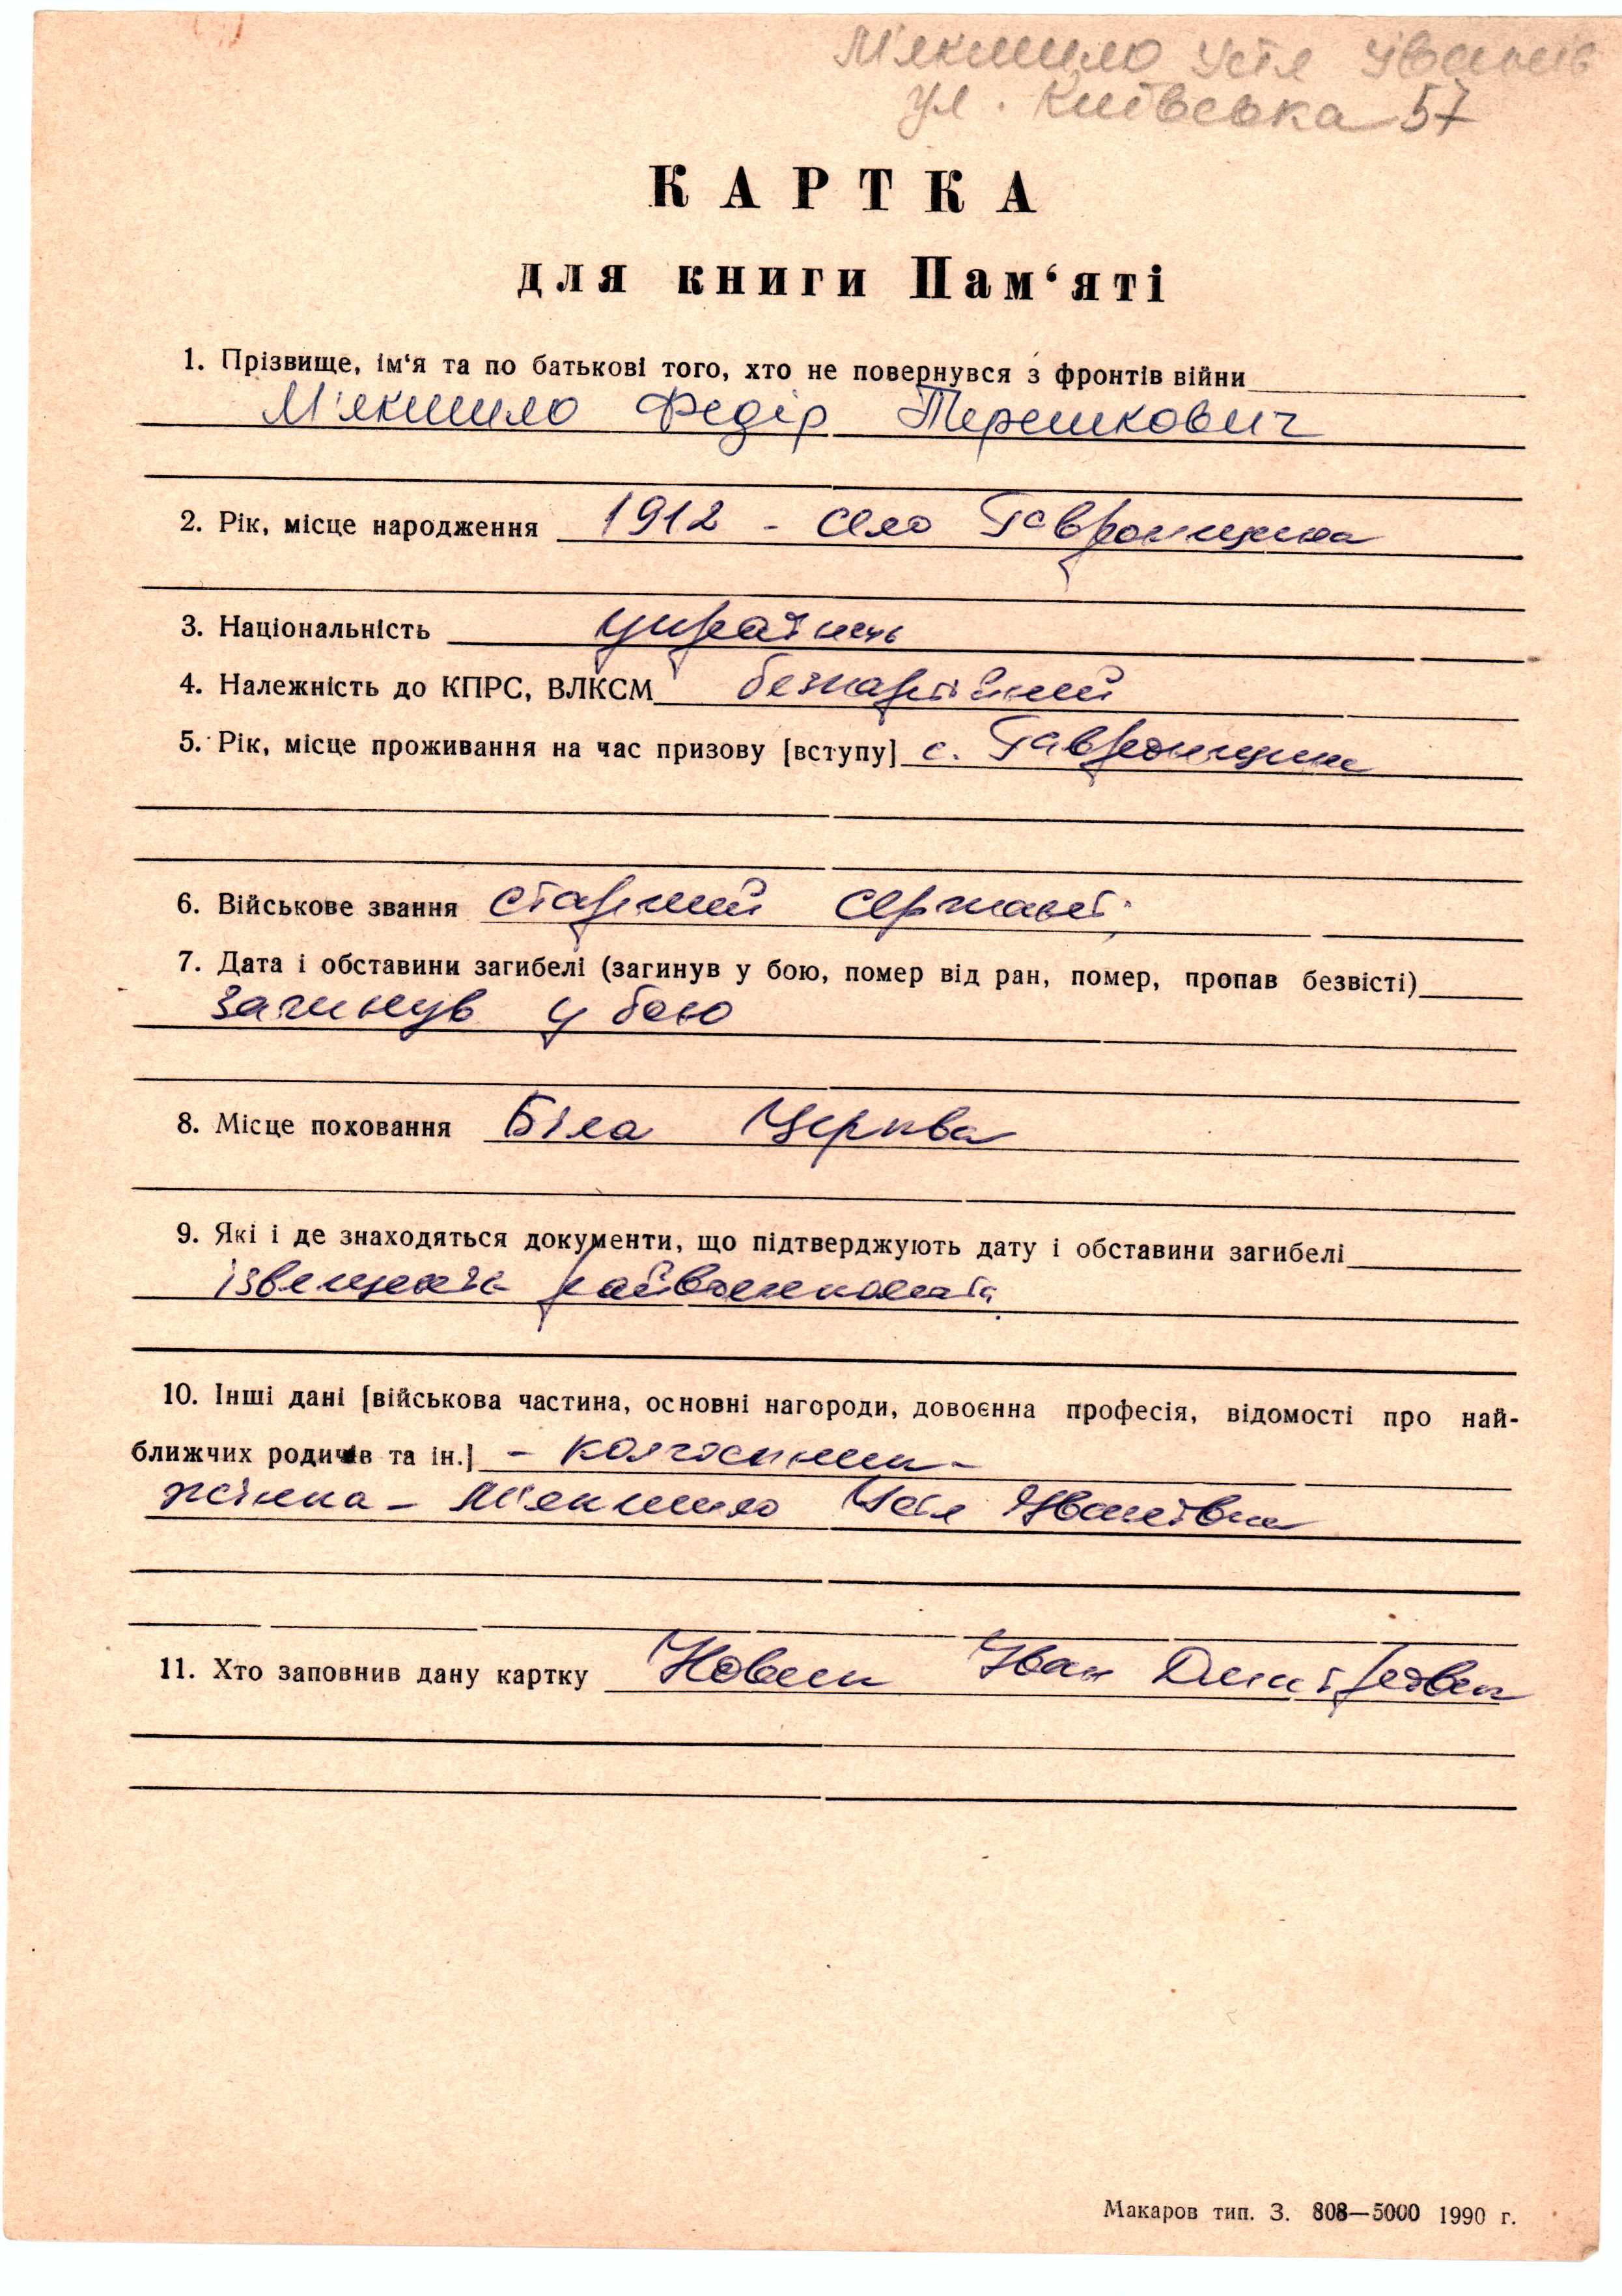 М'якшило Устя Іванів
ул. Київська 57
КАРТКА
для книги Пам‘яті
1. Прізвище, ім‘я та по батькові того, хто не повернувся з фронтів війни
М'якшило Федір Терешкович
2. Рік, місце народження 1912 - село Гавронщина
3. Національність українець
4. Належність до КПРС, ВЛКСМ безпартійний
5. Рік, місце проживання на час призову [вступу] с. Гавронщина
6. Військове звання старший сержант
7. Дата і обставини загибелі (загинув у бою, помер від ран, помер, пропав безвісті)
загинув у бою
8. Місце поховання Біла Церква
9. Які і де знаходяться документи, що підтверджують дату і обставини загибелі
райвоенкомата
10. Інші дані [військова частина, основні нагороди, довоєнна професія, відомості про най-
ближчих родичів та ін.] - колгоспник -
жінка - М'якшило Устя Іванівна
11. Хто заповнив дану картку Новик Іван
Макаров тип. З. 808—5000 1990 г.